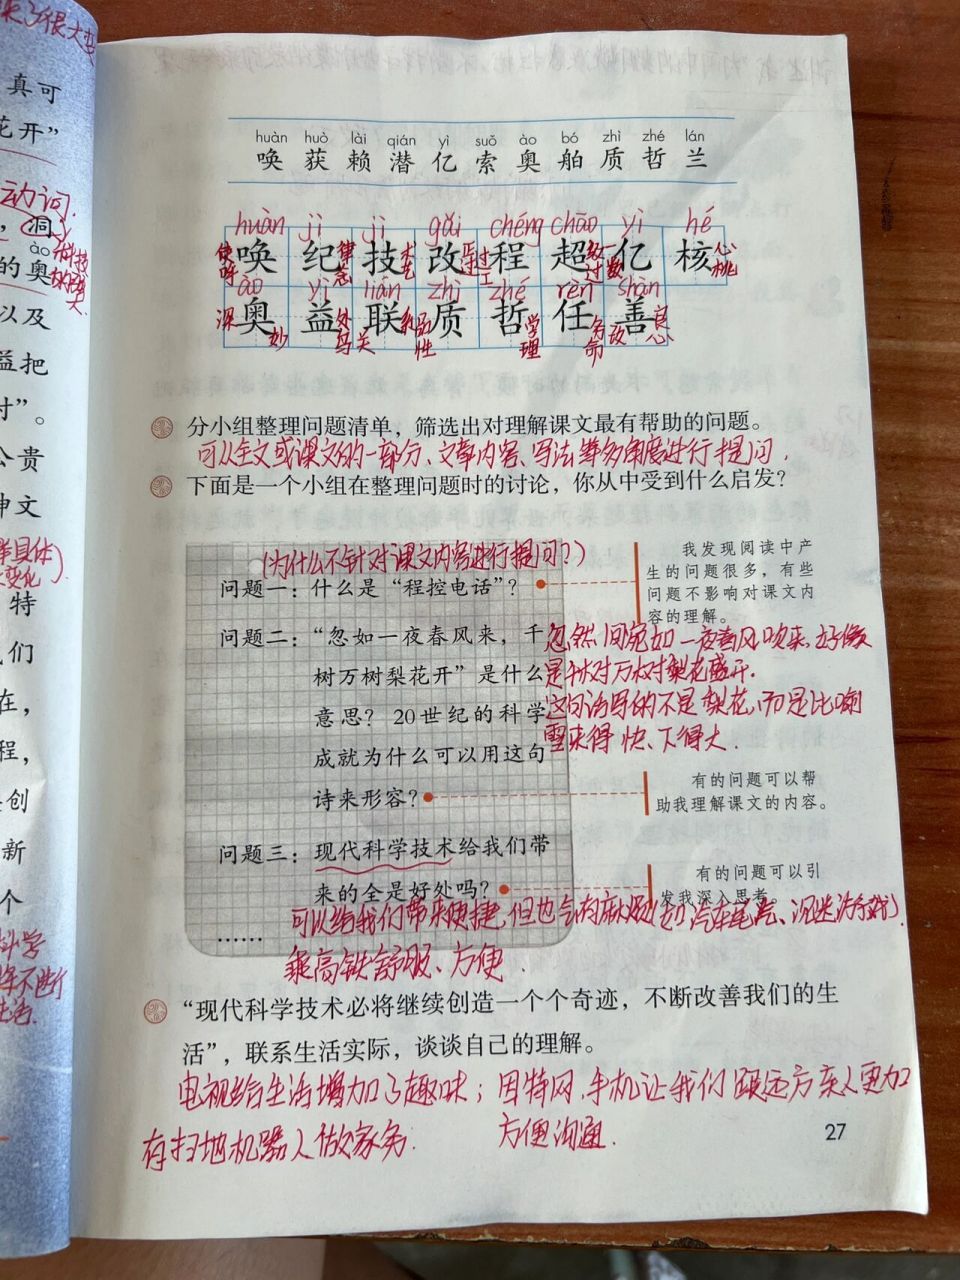 来了很大变
真可
花开”
动词.
，洞
ào
的奥
以及
益把
寸”。
公贵
坤文
特
们
在，
程，
创
新
个
科学
不断
huàn huò lài qián yì suǒ ào bó zhì zhé lán
唤 获 赖 潜 亿 索 奥 舶 质 哲 兰
huàn jì jì gǎi chéng chāo yì hé
使唤 呼唤 纪律 纪念 技术 技艺 改正 程 过 工 超 超过 亿 核心 核桃
ào yì lián zhì zhé rèn shàn
深奥 奥妙 益 联系 联 关 质 性 哲学 哲理 任务 任命 善 改 良 心
分小组整理问题清单，筛选出对理解课文最有帮助的问题。
可以全文或课文的一部分、文章内容、写法等多角度进行提问.
下面是一个小组在整理问题时的讨论，你从中受到什么启发？
(为什么不针对课文内容进行提问?)
问题一：什么是“程控电话”？
我发现阅读中产
生的问题很多，有些
问题不影响对课文内
容的理解。
问题二：“忽如一夜春风来，千
树万树梨花开”是什么
意思？20世纪的科学
成就为什么可以用这句
诗来形容？
忽然间宛如一夜春风吹来,好像
是千树万树梨花盛开.
这句诗写的不是梨花,而是比喻
雪来得快、下得大.
有的问题可以帮
助我理解课文的内容。
问题三：现代科学技术给我们带
来的全是好处吗？
有的问题可以引
发我深入思考。
可以给我们带来便捷,但也气有麻烦(如汽车尾气、沉迷游戏)
……
乘高铁舒服、方便.
“现代科学技术必将继续创造一个个奇迹，不断改善我们的生
活”，联系生活实际，谈谈自己的理解。
电视给生活增加了趣味；因特网,手机让我们跟远方亲人更加
方便沟通.
有扫地机器人做家务.
27